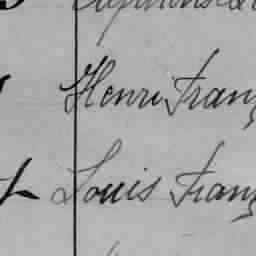 Henri Franz
Louis Franz